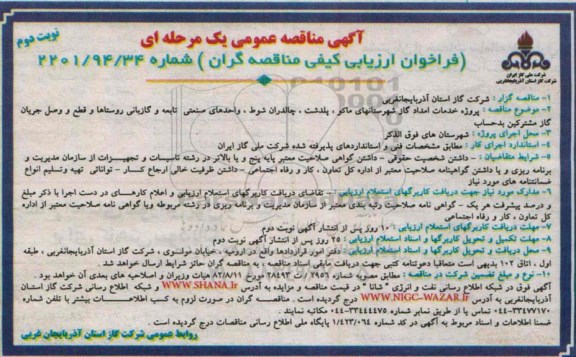 نوبت دوم
آگهی مناقصه عمومی یک مرحله ای
(فراخوان ارزیابی کیفی مناقصه گران ) شماره ۲۲۰۱/۹۴/۳۴
شرکت ملی گاز ایران
شرکت گاز استان آذربایجانغربی
۱- مناقصه گزار : شرکت گاز استان آذربایجانغربی
۲- موضوع مناقصه : پروژه خدمات امداد گاز شهرستانهای ماکو ، پلدشت ، چالدران شوط ، واحدهای صنعتی تابعه و گازبانی روستاها و قطع و وصل جریان
گاز مشترکین بدحساب
۳- محل اجرای پروژه : شهرستان های فوق الذکر
۴- استاندارد اجرای کار : مطابق مشخصات فنی و استانداردهای پذیرفته شده شرکت ملی گاز ایران
۵- شرایط متقاضیان : - داشتن شخصیت حقوقی - داشتن گواهی صلاحیت معتبر پایه پنج و یا بالاتر در رشته تاسیسات و تجهیزات از سازمان مدیریت و
برنامه ریزی و یا داشتن گواهینامه صلاحیت معتبر از اداره کل تعاون ، کار و رفاه اجتماعی - داشتن ظرفیت خالی ارجاع کار - توانائی تهیه وتسلیم انواع
ضمانتنامه های مورد نیاز
۶- مدارک مورد نیاز جهت دریافت کاربرگهای استعلام ارزیابی : - تقاضای دریافت کاربرگهای استعلام ارزیابی و اعلام کارهای در دست اجرا با ذکر مبلغ
و درصد پیشرفت هر یک - گواهی نامه صلاحیت و رتبه بندی معتبر از سازمان مدیریت و برنامه ریزی در رشته مربوطه ویا گواهی نامه صلاحیت معتبر از اداره
کل تعاون ، کار و رفاه اجتماعی
۷- مهلت دریافت کاربرگهای استعلام ارزیابی : ۱۰ روز پس از انتشار آگهی نوبت دوم
۸- مهلت تکمیل و تحویل کاربرگها و اسناد استعلام ارزیابی : ۲۵ روز پس از انتشار آگهی نوبت دوم
۹- محل دریافت و تحویل کاربرگها و اسناد استعلام ارزیابی : دفتر امور قراردادها واقع در ارومیه ، خیابان مولوی ، شرکت گاز استان آذربایجانغربی ، طبقه
اول ، اتاق ۱۰۲ بدیهی است متعاقبا دعوتنامه کتبی جهت دریافت مابقی اسناد مناقصه ، به مناقصه گران حائز شرایط ارسال خواهد شد .
۱۰- نوع و مبلغ تضمین شرکت در مناقصه : مطابق مصوبه شماره ت ۲۸۴۹۳ مورخ ۸۲/۸/۱۱ هیات وزیران و اصلاحیه های بعدی آن خواهد بود .
آگهی فوق در شبکه اطلاع رسانی نفت و انرژی " شانا " در قیمت مناقصه و مزایده به آدرس WWW.SHANA.Ir و شبکه اطلاع رسانی شرکت گاز استان
آذربایجانغربی به آدرس WWW.NIGC-WAZAR.Ir درج گردیده است . مناقصه گران در صورت لزوم به کسب اطلاعات بیشتر با تلفن شماره
۰۴۴-۳۳۴۷۷۱۷۰ تماس یا از طریق نمابر شماره ۰۴۴-۳۳۴۴۴۴۷۵ مکاتبه نمایند .
ضمنا اطلاعات و اسناد مربوط به آگهی در کد شماره ۱/۴۲۳/۰۹۴ پایگاه ملی اطلاع رسانی مناقصات درج گردیده است .
روابط عمومی شرکت گاز استان آذربایجان غربی